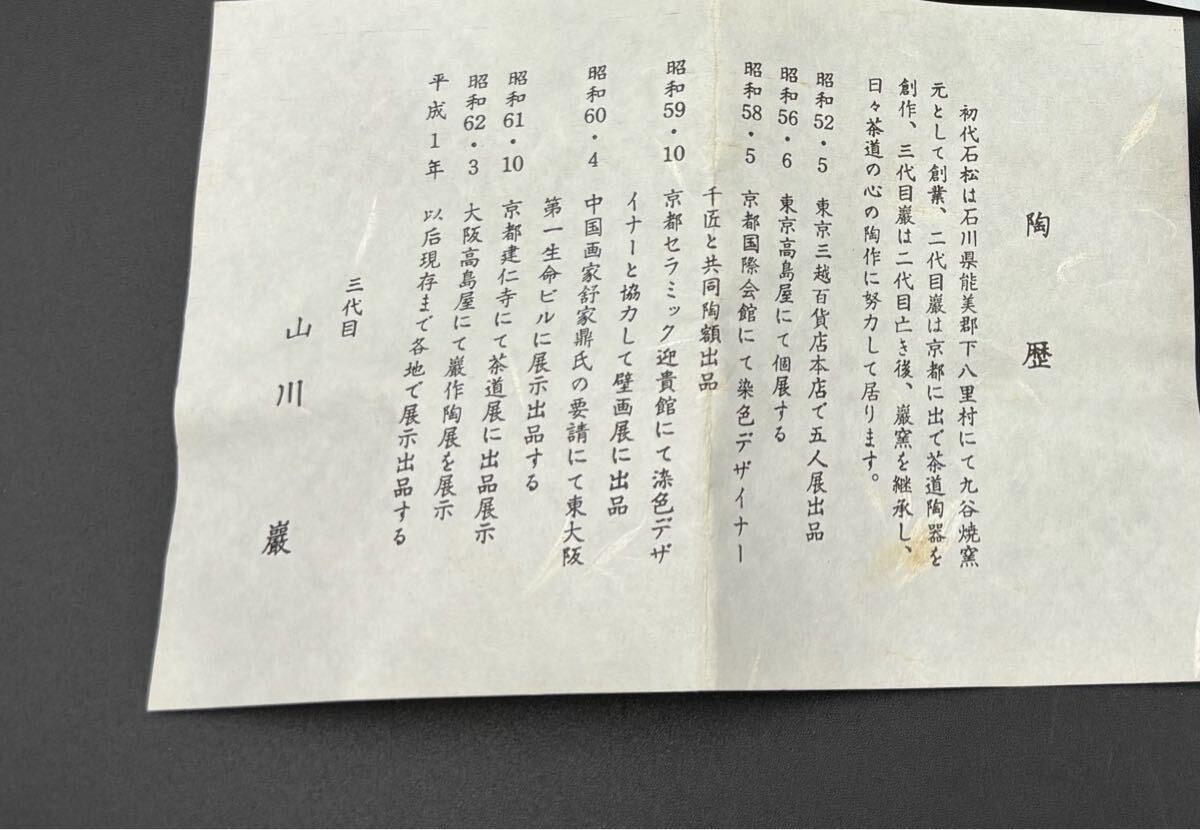 陶歴
初代石松は石川県能美郡下八里村にて九谷焼窯
元として創業、二代目巖は京都に出で茶道陶器を
創作、三代目巖は二代目亡き後、巖窯を継承し、
日々茶道の心の陶作に努力して居ります。
昭和52・5 東京三越百貨店本店で五人展出品
昭和56・6 東京高島屋にて個展する
昭和58・5 京都国際会館にて染色デザイナー
千匠と共同陶額出品
昭和59・10 京都セラミック迎貴館にて染色デザ
イナーと協力して壁画展に出品
昭和60・4 中国画家舒家鼎氏の要請にて東大阪
第一生命ビルに展示出品する
昭和61・10 京都建仁寺にて茶道展に出品展示
昭和62・3 大阪高島屋にて巖作陶展を展示
平成1年 以后現存まで各地で展示出品する
三代目
山川 巖